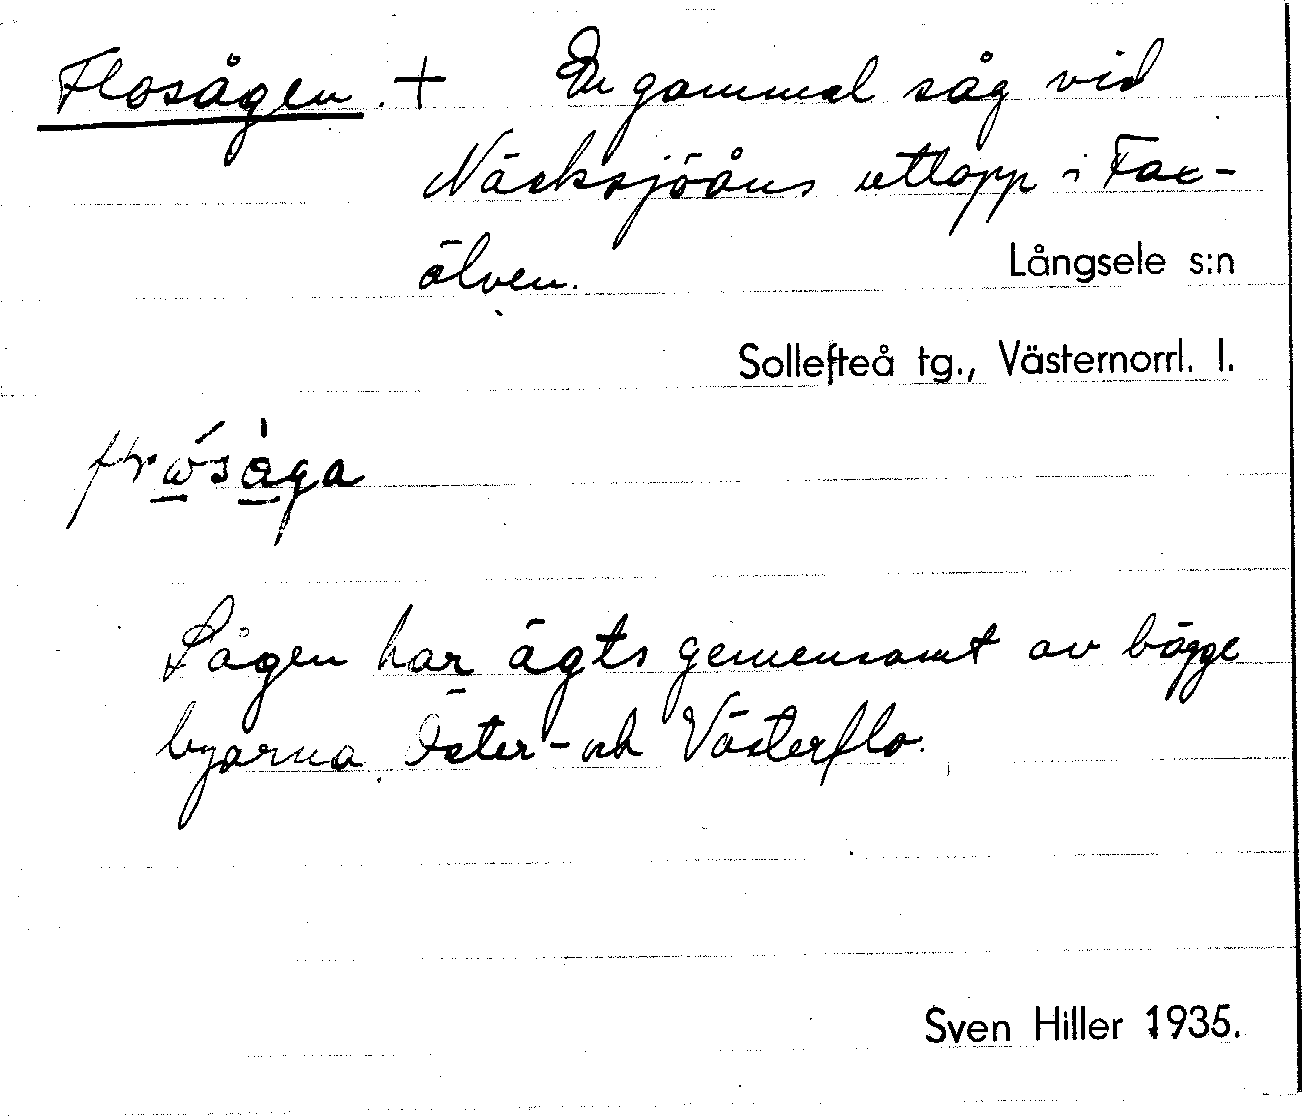 Flosågen. + En gammal såg vid
Näcksjöåns utlopp i Fax-
älven.
Långsele s:n
Sollefteå tg., Västernorrl. l.
Sågen har ägts gemensamt av bägge
byarna Öster- och Västerflo.
Sven Hiller 1935.